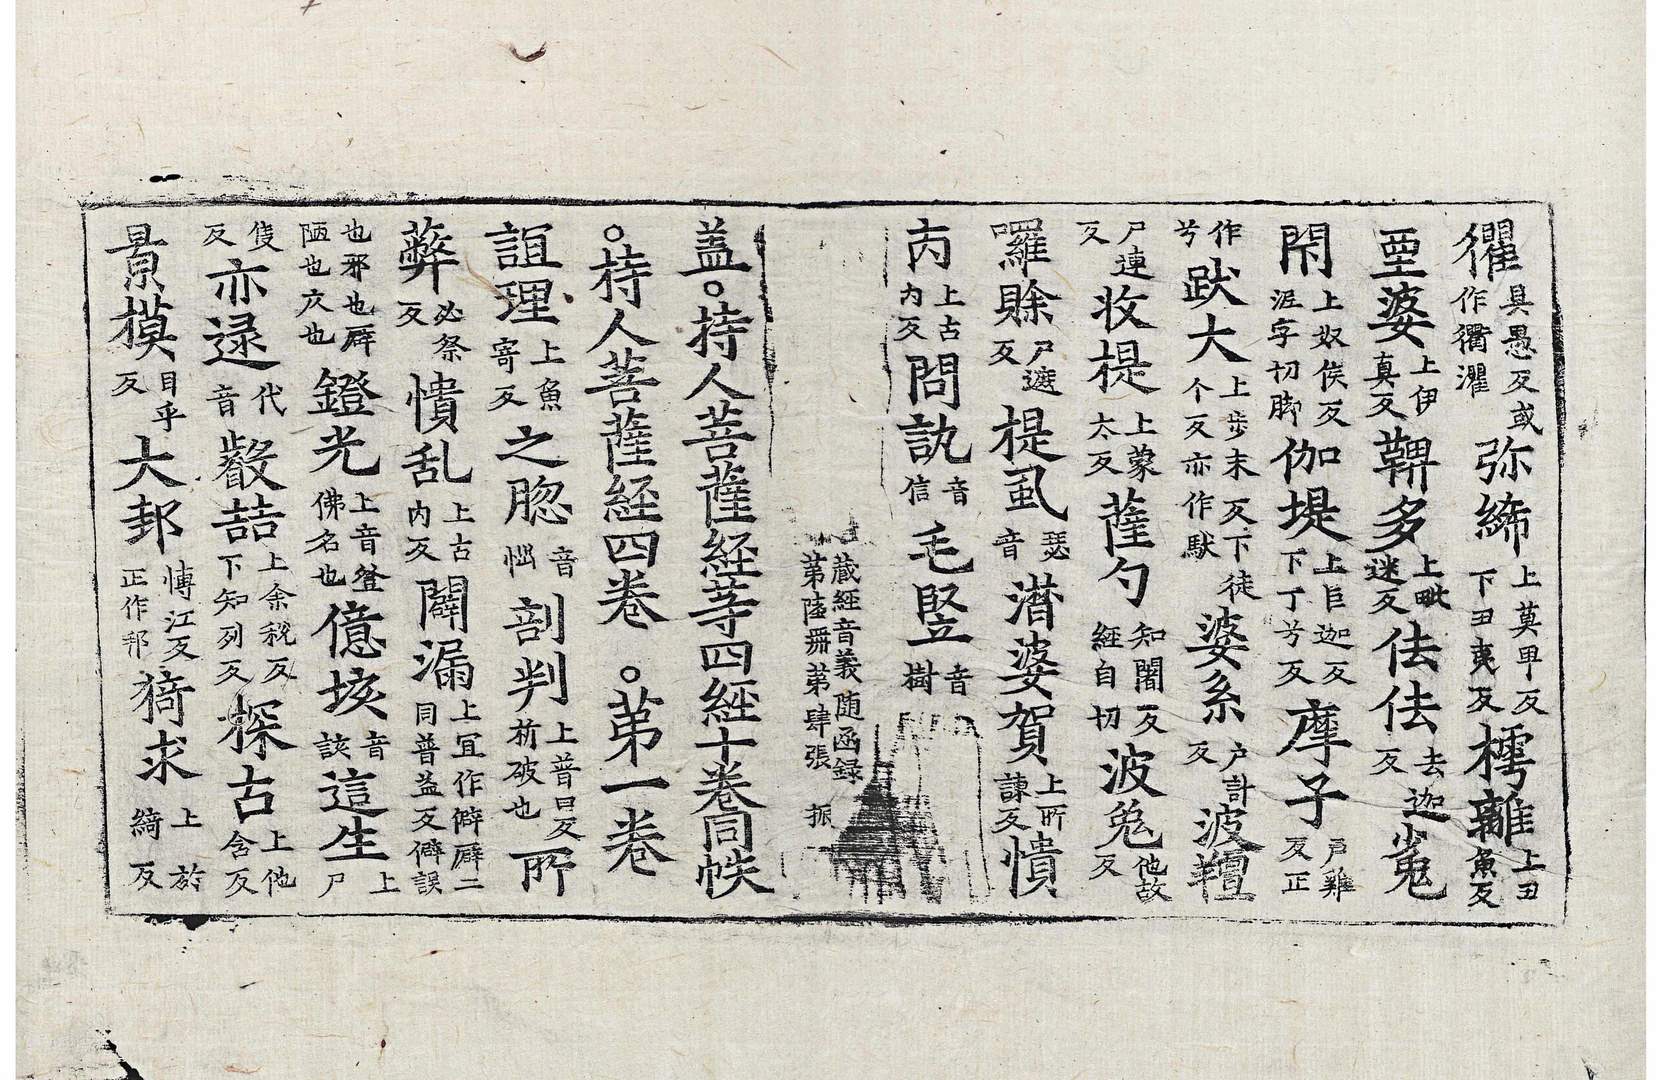 忂具愚反或作衢濯弥締上莫甲反下丑夷反樗離上丑魚反
垔婆上伊真反鞞多上毗迷反佉佉去迦反㝹
閇上奴侯反涅字切脚伽堤上巨迦反下丁兮反摩子戶雞反正
作兮䟦大上步末反下徒个反亦作馱婆系戶計反波䍴
尸連反收提上蒙太反薩勺知闍反經自切波兔他故反
囉賖尸遮反提虱瑟音潜婆賀上所諫反憒
內上古內反問訊音信毛竪音樹
藏經音義随函録
苐陸冊苐肆張 振
盖○持人菩薩經等四經十卷同帙
○持人菩薩經四卷 ○苐一卷
誼理上魚寄反之䐅音惚剖判上普口反析破也所
蔽必祭反憒乱上古內反闢漏上冝作僻廦二同普益反僻誤
也邪也廦陋也庂也鐙光上音登佛名也億垓音該這生上尸
隻反亦逯代音㲉喆上余稅反下知列反探古上他含反
景模目乎反大邦愽江反正作邦猗求上於綺反